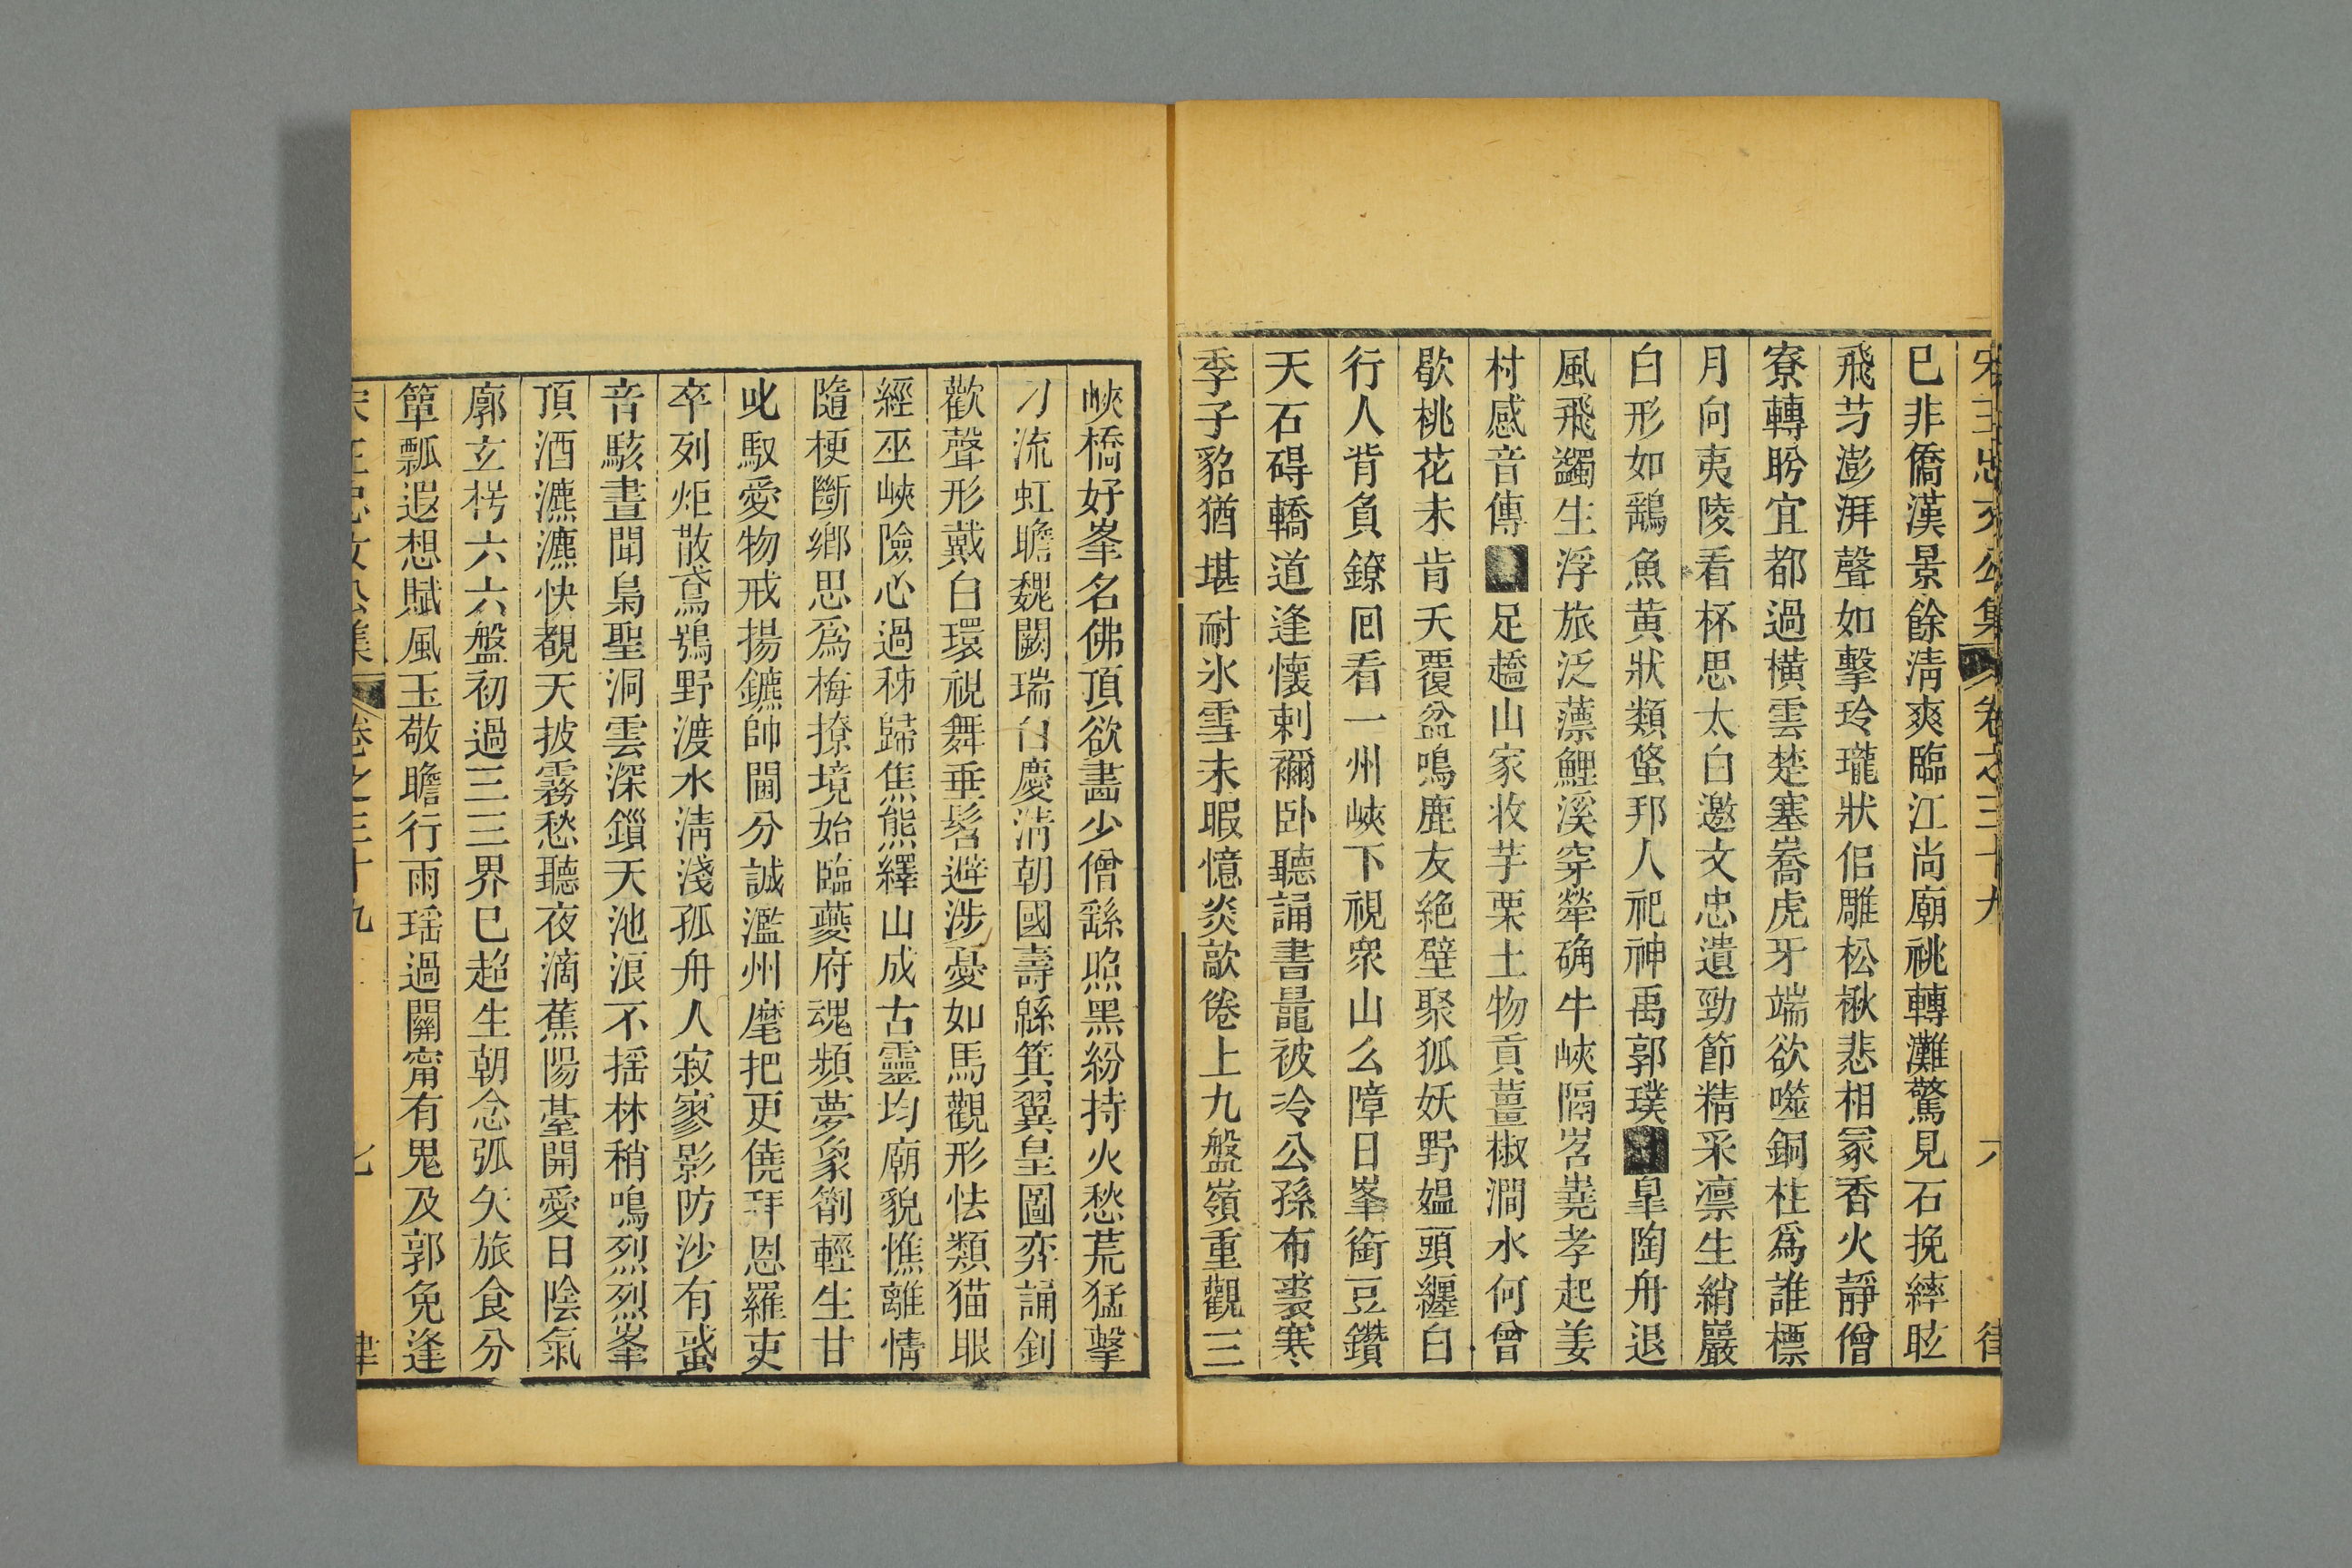 宋王忠文公集 卷之三十九 六 律
已非僑漢景餘淸爽臨江尚廟祧轉灘驚見石挽縴眩
飛芀澎湃聲如擊玲瓏狀侣雕松楸悲相冢香火靜僧
寮轉盻宜都過橫雲楚塞喬虎牙端欲噬銅柱爲誰標
月向夷陵看杯思太白邀文忠遺勁節精采凛生綃巖
白形如鷊魚黄狀類螌邦人祀神禹郭璞皐陶舟退
風飛蠲生浮旅泛薸鯉溪穿犖确牛峽隔岧嶤孝起姜
村感音傳足趫山家收芋栗土物貢薑椒澗水何曾
歇桃花未肯夭覆盆鳴鹿友絶壁聚狐妖野媪頭纏白
行人背負鐐囘看一州峽下視衆山么障日峯銜豆鑽
天石碍轎道逢懷刺禰卧聽誦書鼂被冷公孫布裘寒
季子貂猶堪耐氷雪未暇憶炎歊倦上九盤嶺重觀三
峽橋好峯名佛頂欲畵少僧繇炤黑紛持火愁荒猛擊
刁流虹瞻魏闕瑞白慶淸朝國壽縣箕翼皇圖弈誦釗
歡聲形戴白環視舞垂髫避涉憂如馬觀形怯類猫眼
經巫峽險心過秭歸焦熊繹山成古靈均廟貌憔離情
隨梗斷鄉思爲梅撩境始臨夔府魂頻夢象箾輕生甘
叱馭愛物戒揚鑣帥閫分誠濫州麾把更僥拜恩羅吏
卒列炬散鳶鴞野渡水淸淺孤舟人寂寥影防沙有蜮
音駭晝聞梟聖洞雲深鎻天池浪不摇林稍鳴烈烈峯
頂酒瀌瀌快覩天披霧愁聽夜滴蕉陽臺開愛日陰氣
廓玄枵六六盤初過三三界巳超生朝念弧矢旅食分
簞瓢遐想賦風玉敬瞻行雨瑶過關甯有鬼及郭免逢
宋王忠文公集 卷之三十九 七 律